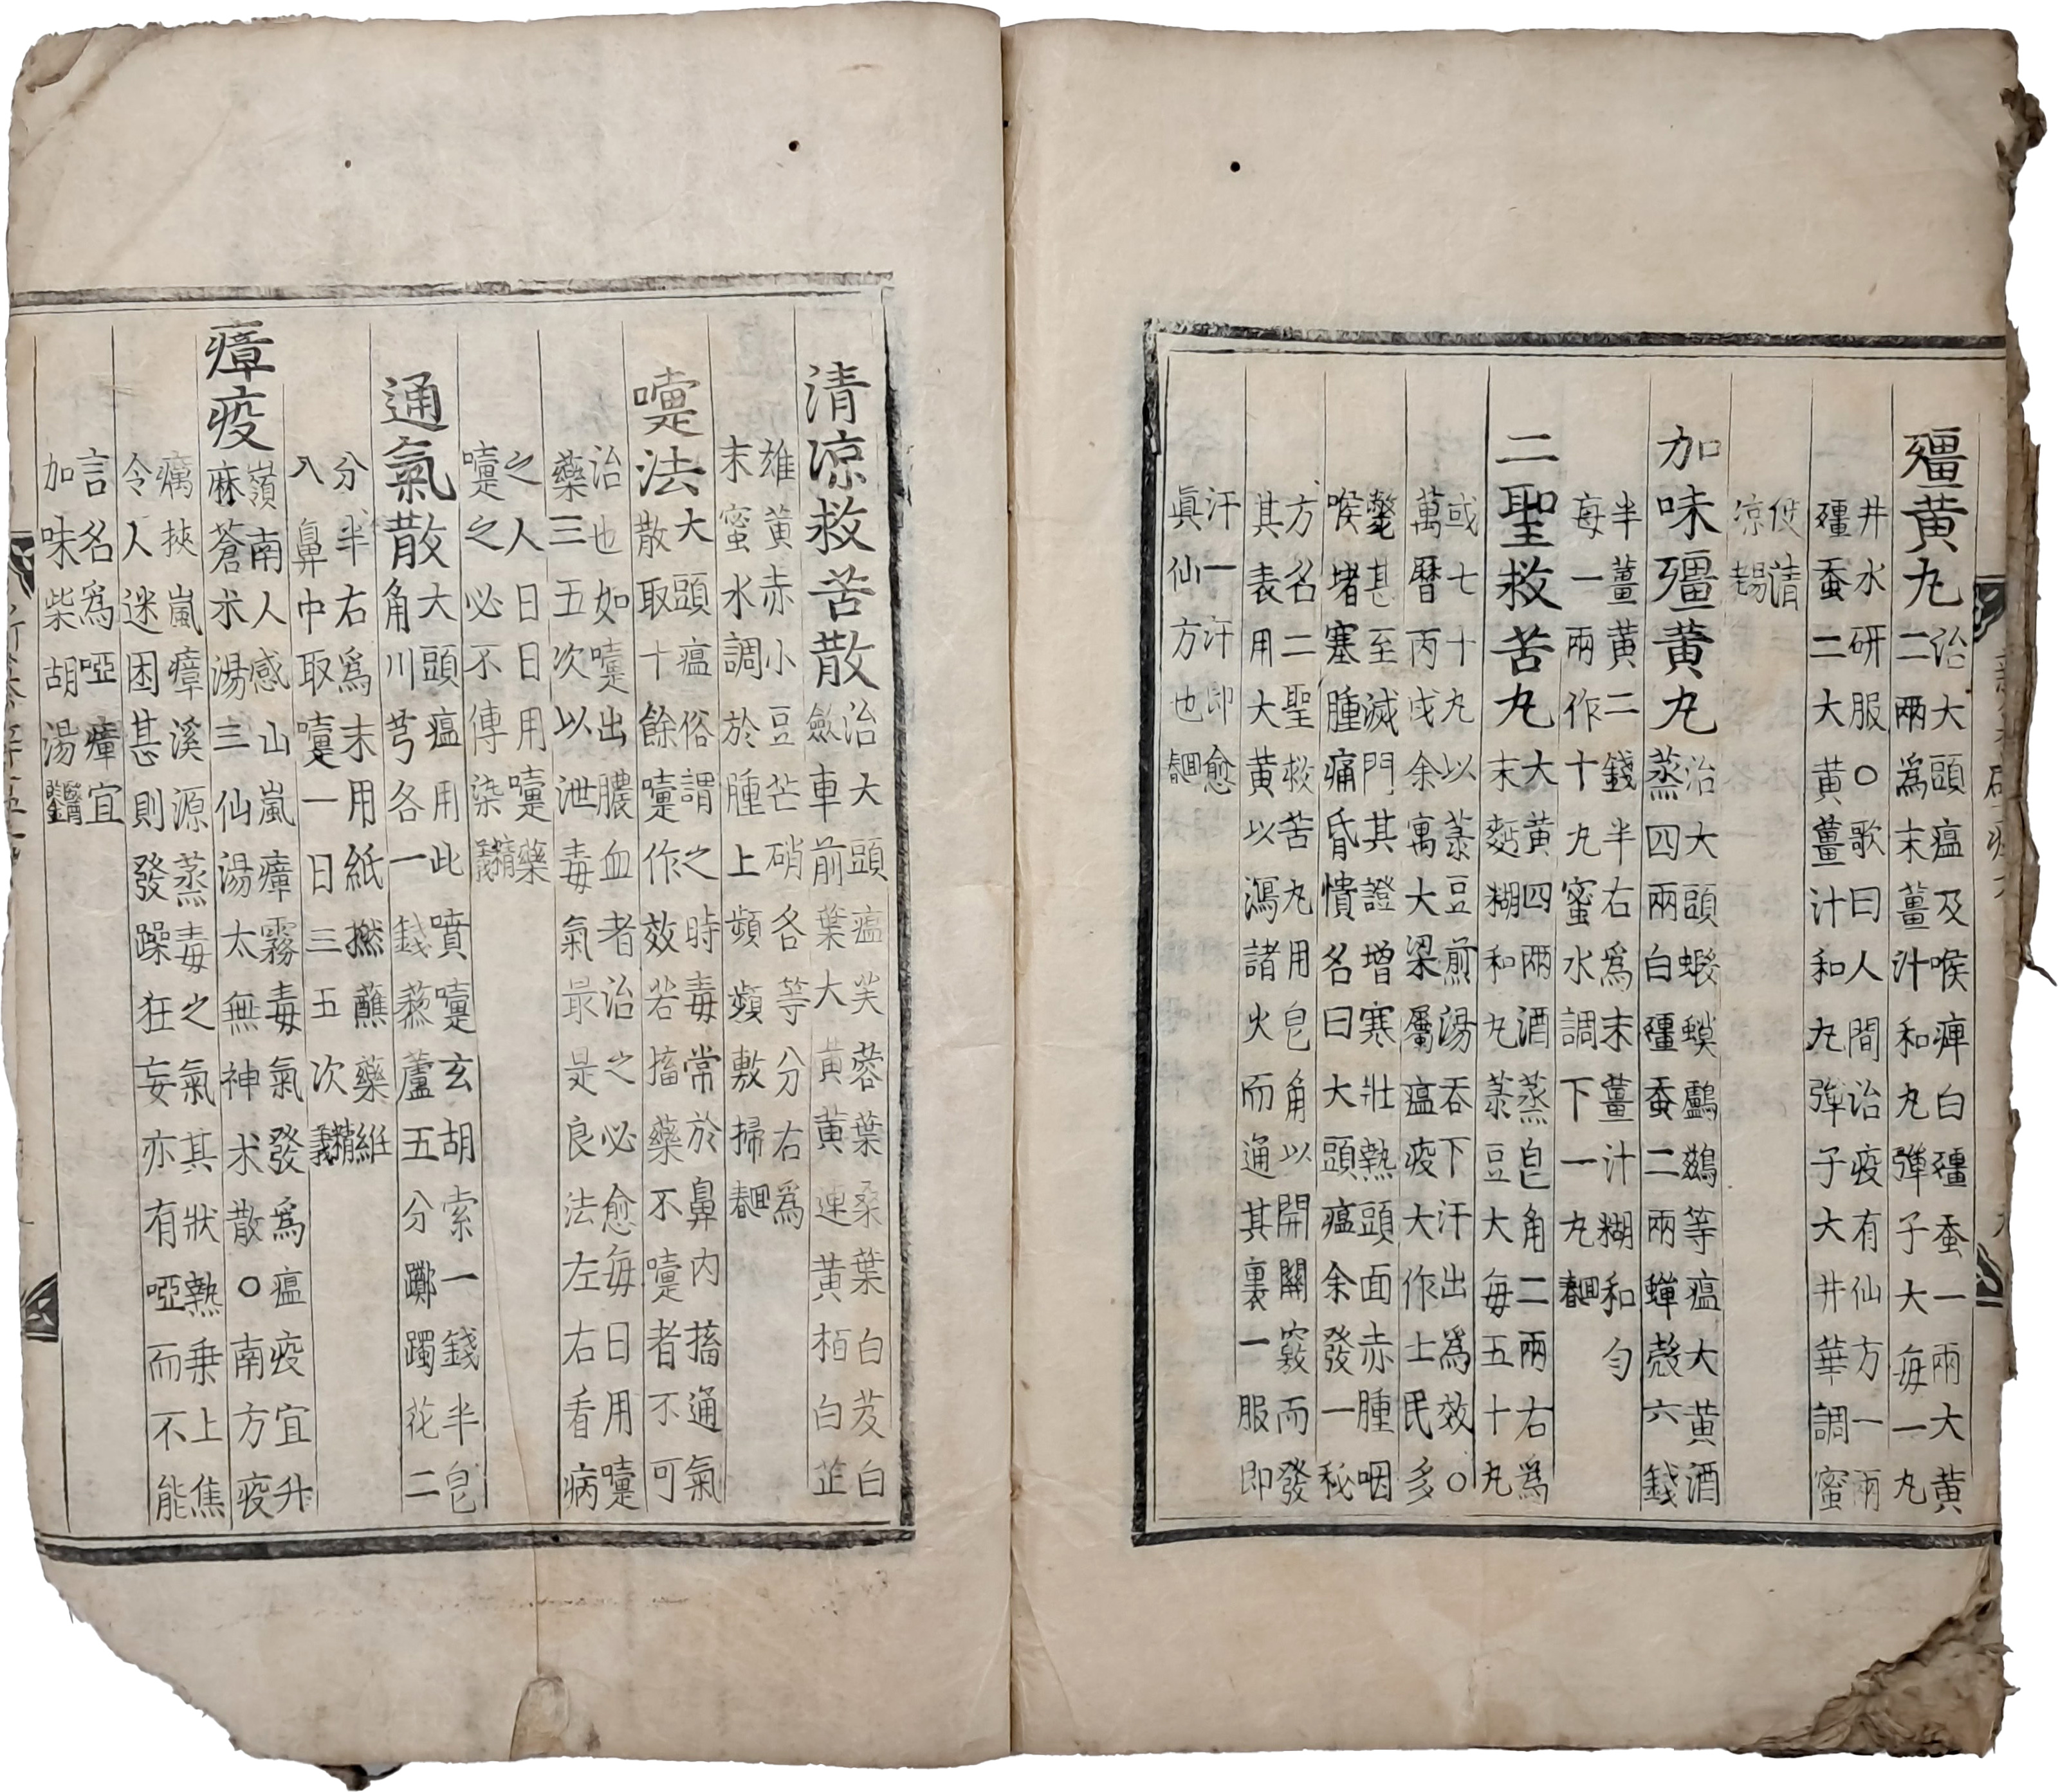 殭黃丸
治大頭瘟及喉痺白殭蚕一兩大黃
二兩爲末薑汁和丸彈子大每一丸
井水研服○歌曰人間治疫有仙方一兩
殭蚕二大黃薑汁和丸彈子大井華調蜜
便淸
凉易老
加味殭黃丸
治大頭蝦蟆鸕鷀等瘟大黃酒
蒸四兩白殭蚕二兩蟬殼六錢
半薑黃二錢半右爲末薑汁糊和勻
每一兩作十丸蜜水調下一丸回春
二聖救苦丸
大黃四兩酒蒸皀角二兩右爲
末麪糊和丸菉豆大每五十丸
或七十丸以菉豆煎湯吞下汗出爲效○
萬曆丙戌余寓大梁屬瘟疫大作士民多
斃甚至滅門其證增寒壯熱頭面赤腫咽
喉堵塞腫痛昏憒名曰大頭瘟余發一秘
方名二聖救苦丸用皀角以開關竅而發
其表用大黃以瀉諸火而通其裏一服卽
汗一汗卽愈
眞仙方也回春
清凉救苦散
治大頭瘟芙蓉葉桑葉白芨白
斂車前葉大黃黃連黃栢白芷
雄黃赤小豆芒硝各等分右爲
末蜜水調於腫上頻頻敷掃回春
嚏法
大頭瘟俗謂之時毒常於鼻內搐通氣
散取十餘嚏作效若搐藥不嚏者不可
治也如嚏出膿血者治之必愈每日用嚏
藥三五次以泄毒氣最是良法左右看病
之人日日用嚏藥
嚏之必不傳染精義
通氣散
大頭瘟用此噴嚏玄胡索一錢半皀
角川芎各一錢藜蘆五分躑躅花二
分半右爲末用紙撚蘸藥維
入鼻中取嚏一日三五次精義
瘴疫
嶺南人感山嵐瘴霧毒氣發爲瘟疫宜升
麻蒼朮湯三仙湯太無神朮散○南方疫
癘挾嵐瘴溪源蒸毒之氣其狀熱乘上焦
令人迷困甚則發躁狂妄亦有啞而不能
言名爲啞瘴宜
加味柴胡湯